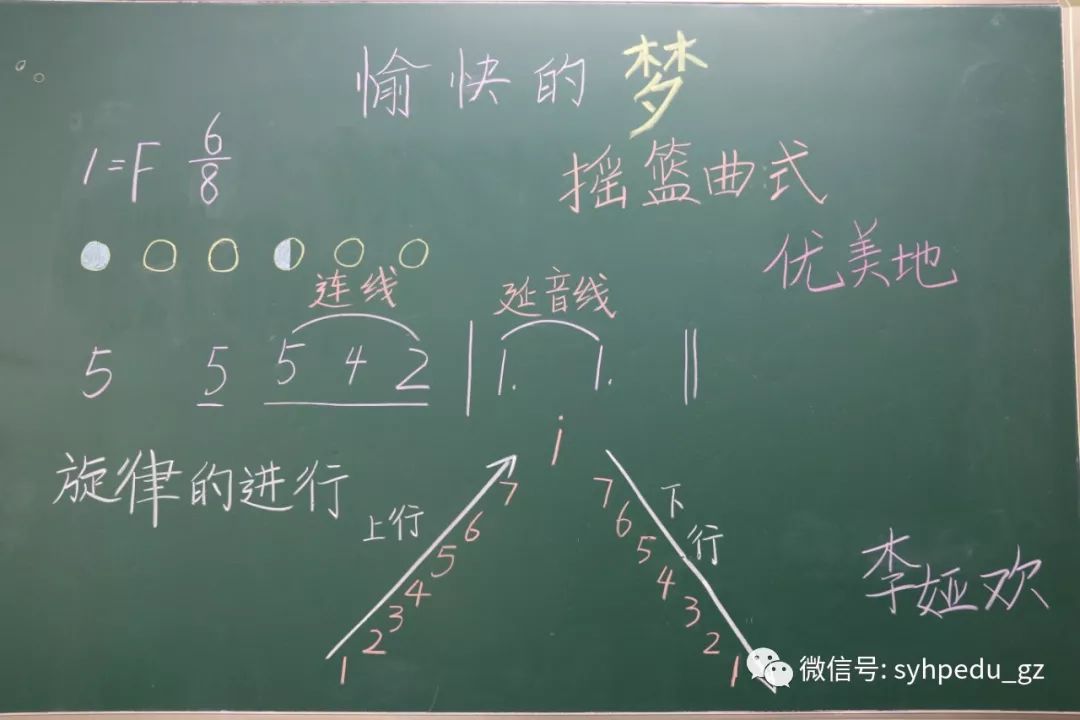 愉快的梦
1=F 6/8
摇篮曲式
优美地
连线 延音线
5 5 5 4 2 | 1. 1. ||
旋律的进行
上行 1 2 3 4 5 6 7 i 7 6 5 4 3 2 1 下行
李娅欢
微信号: syhpedu_gz